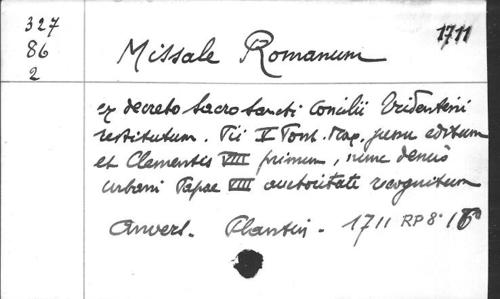 327
86
2
Missale Romanum
1711
ex decreto Sacrosancti Concilii Tridentini
restitutum. Pii V Pont. Max. jussu editum
et Clementis VIII primum, nunc denuo
Urbani Papae VIII auctoritate recognitum
Anvers. Plantin. 1711 RP 8° 16